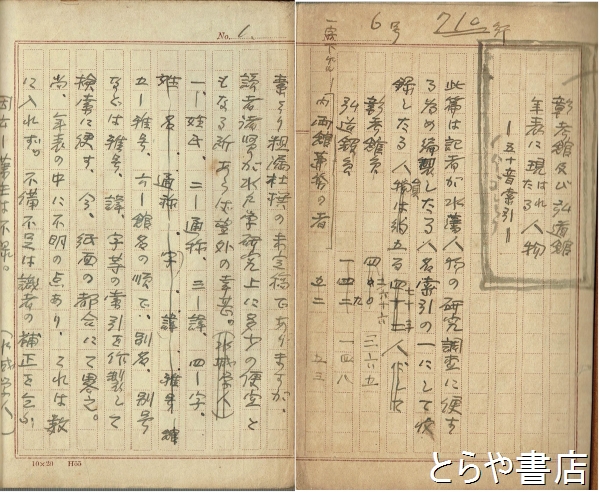 6号
710行
彰考館及び弘道館
年表に現はれたる人物
―五十音索引―
此篇は記者が水藩人物の研究調査に便す
る為め編製したる人名索引の一にして収
録したる人員は約五百
人にして
彰考館員
弘道館員
内両館兼務の者
四〇〇
三六九
一四二
一四八
五二
五三
No. 1
素より粗漏杜撰の未定稿でありますが、
読者諸賢が水戸学研究上に多少の便宜と
もなる所あらば望外の幸甚。(水城学人)
一、姓氏、二―通称、三―諱、四―字、
姓名、通称、字、諱、雅号
五―雅号、六―館名の順で、別名、別号
などは雅号、諱、字等の索引を作製して
検索に便す、今、紙面の都合にて略之。
尚、年表の中に不明の点あり、それは数
に入れず。不備不足は識者の補正を乞ふ
(水城学人)
10×20 H55
とらや書店